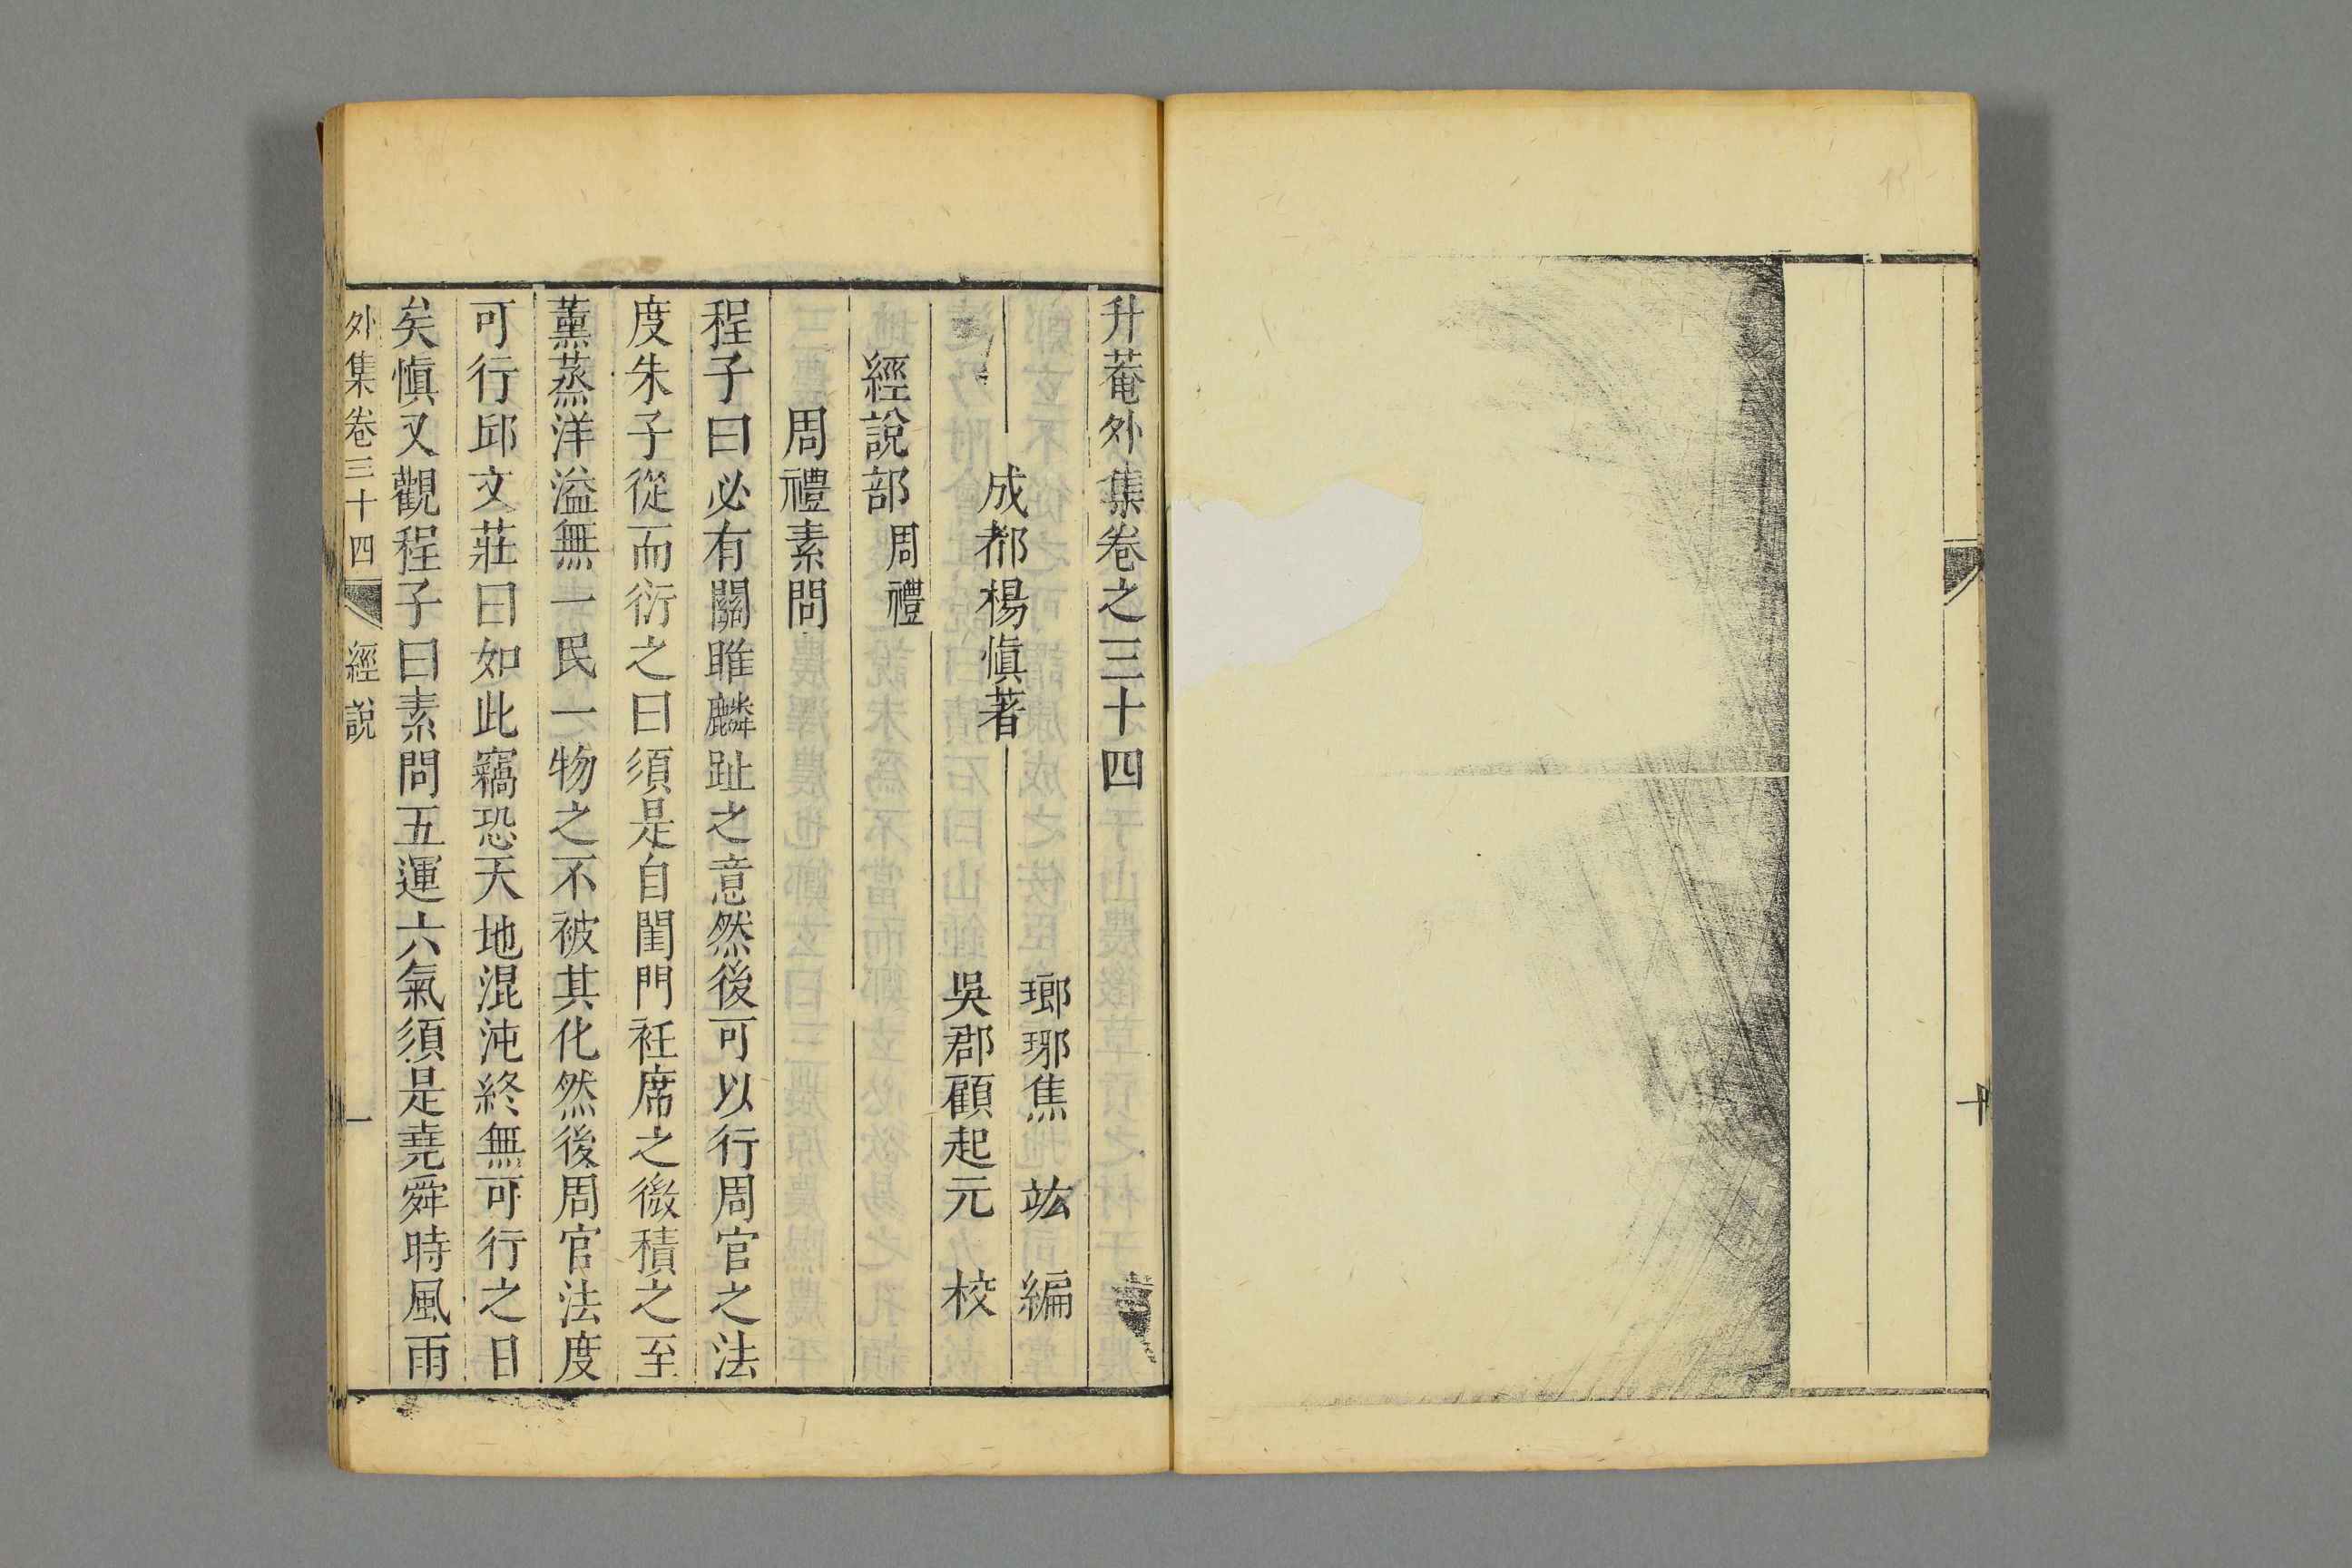 升菴外集卷之三十四
瑯琊焦 竑 編
成都楊慎著
吳郡顧起元 校
經說部 周禮
周禮素問
程子曰必有關雎麟趾之意然後可以行周官之法
度朱子從而衍之曰須是自閨門衽席之微積之至
薰蒸洋溢無一民一物之不被其化然後周官法度
可行邱文莊曰如此竊恐天地混沌終無可行之日
矣慎又觀程子曰素問五運六氣須是堯舜時風雨
外集卷三十四 經說 一